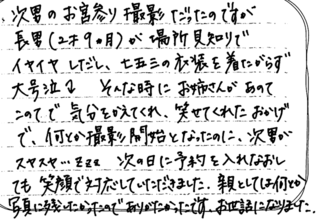 次男のお宮参り撮影だったのですが
長男(2才9ヶ月)が場所見知りで
イヤイヤしだし、七五三の衣装を着たがらず
大号泣↓ そんな時にお姉さんがあの
このてで気分をかえてくれ、笑せてくれたおかげ
で、何とか撮影開始となったのに、次男が
スヤスヤ…zzz 次の日に予約を入れなおし
ても笑顔で対応していただきました。親としては何とか
写真に残したかったのでありがたかったです。お世話になりました。